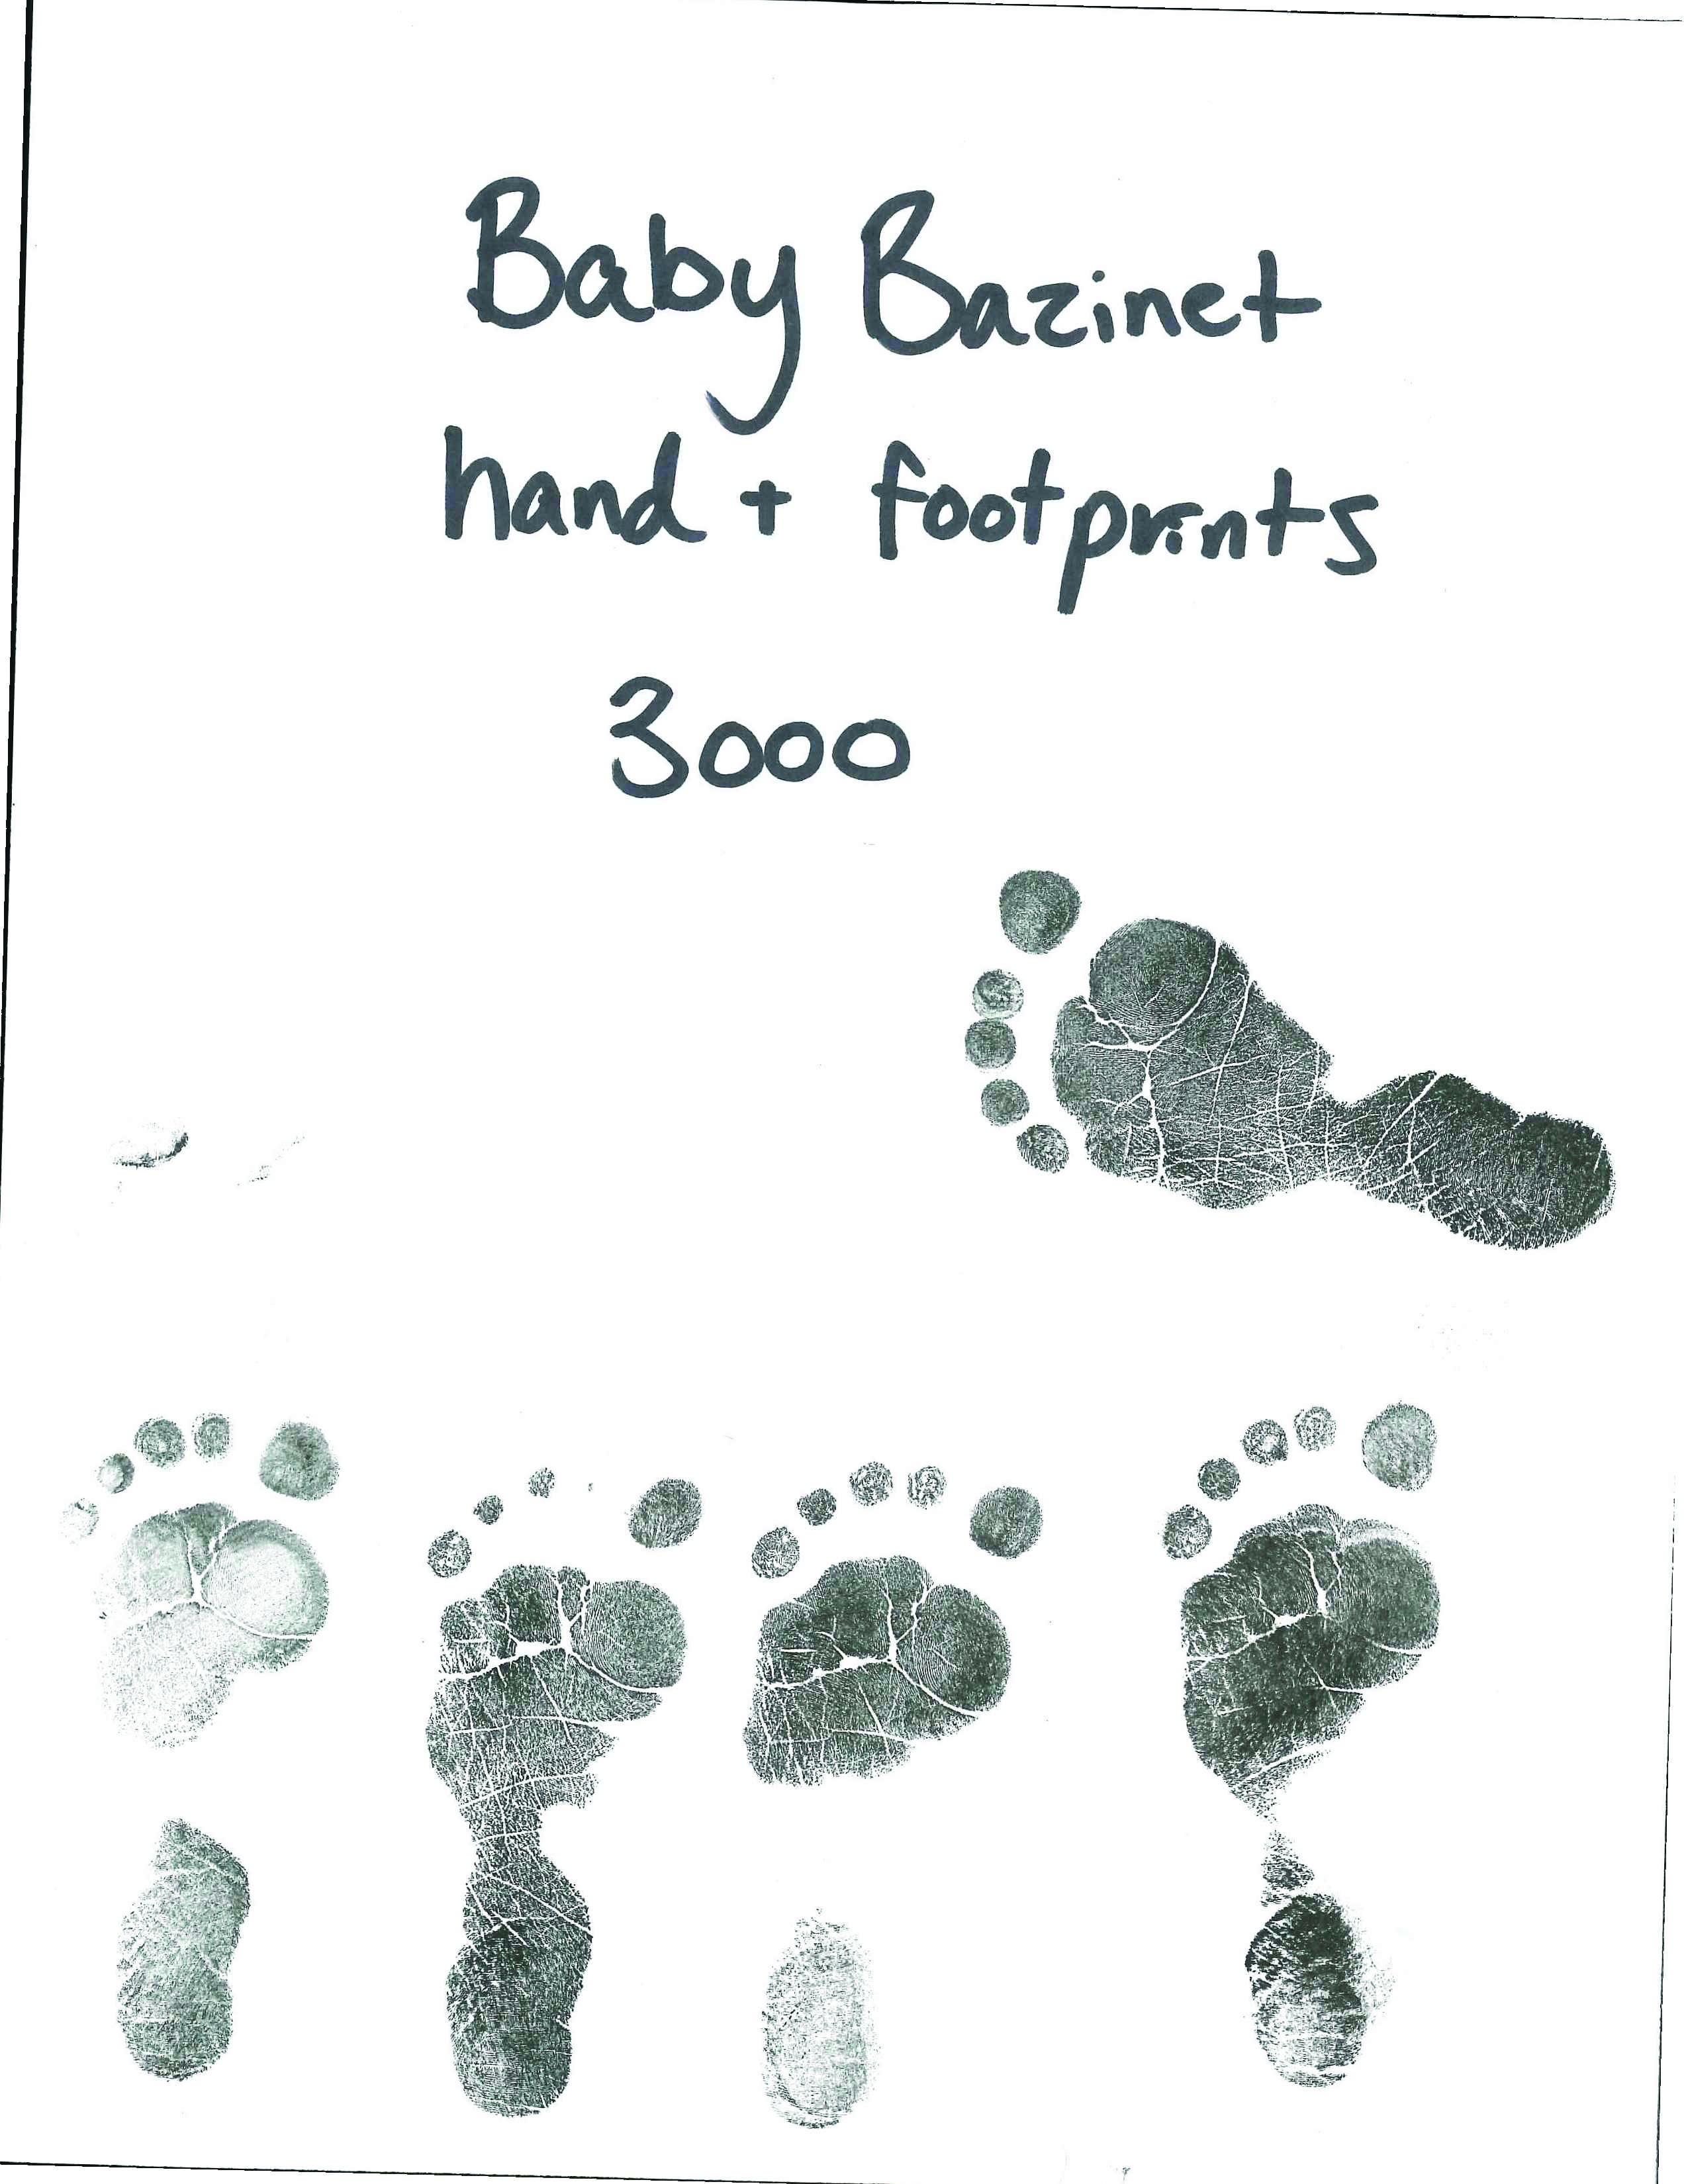 Baby Bazinet
hand + footprints
3000